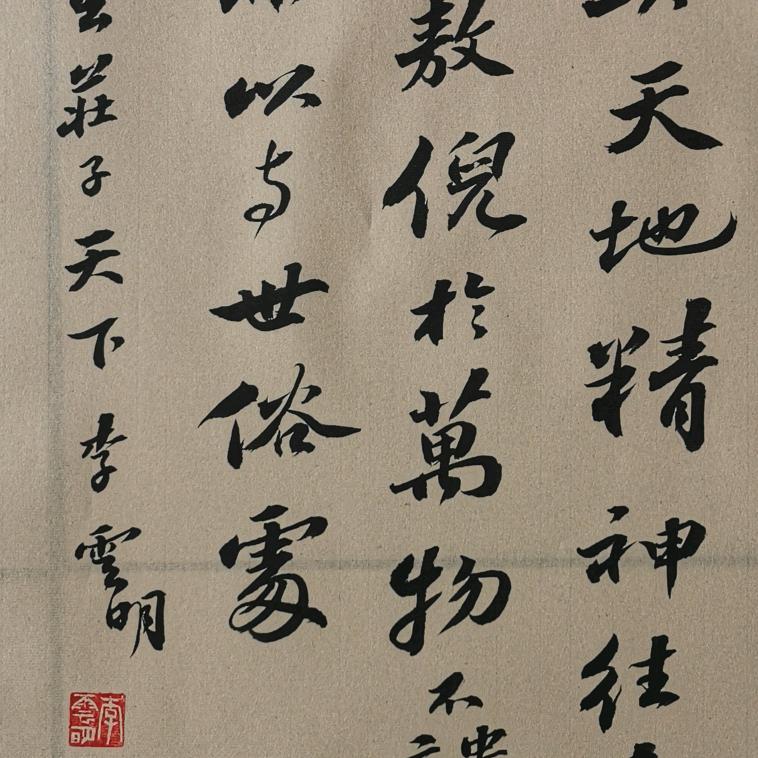 天地精神往
敖倪於萬物不
以与世俗處
莊子天下李雲明
李雲明